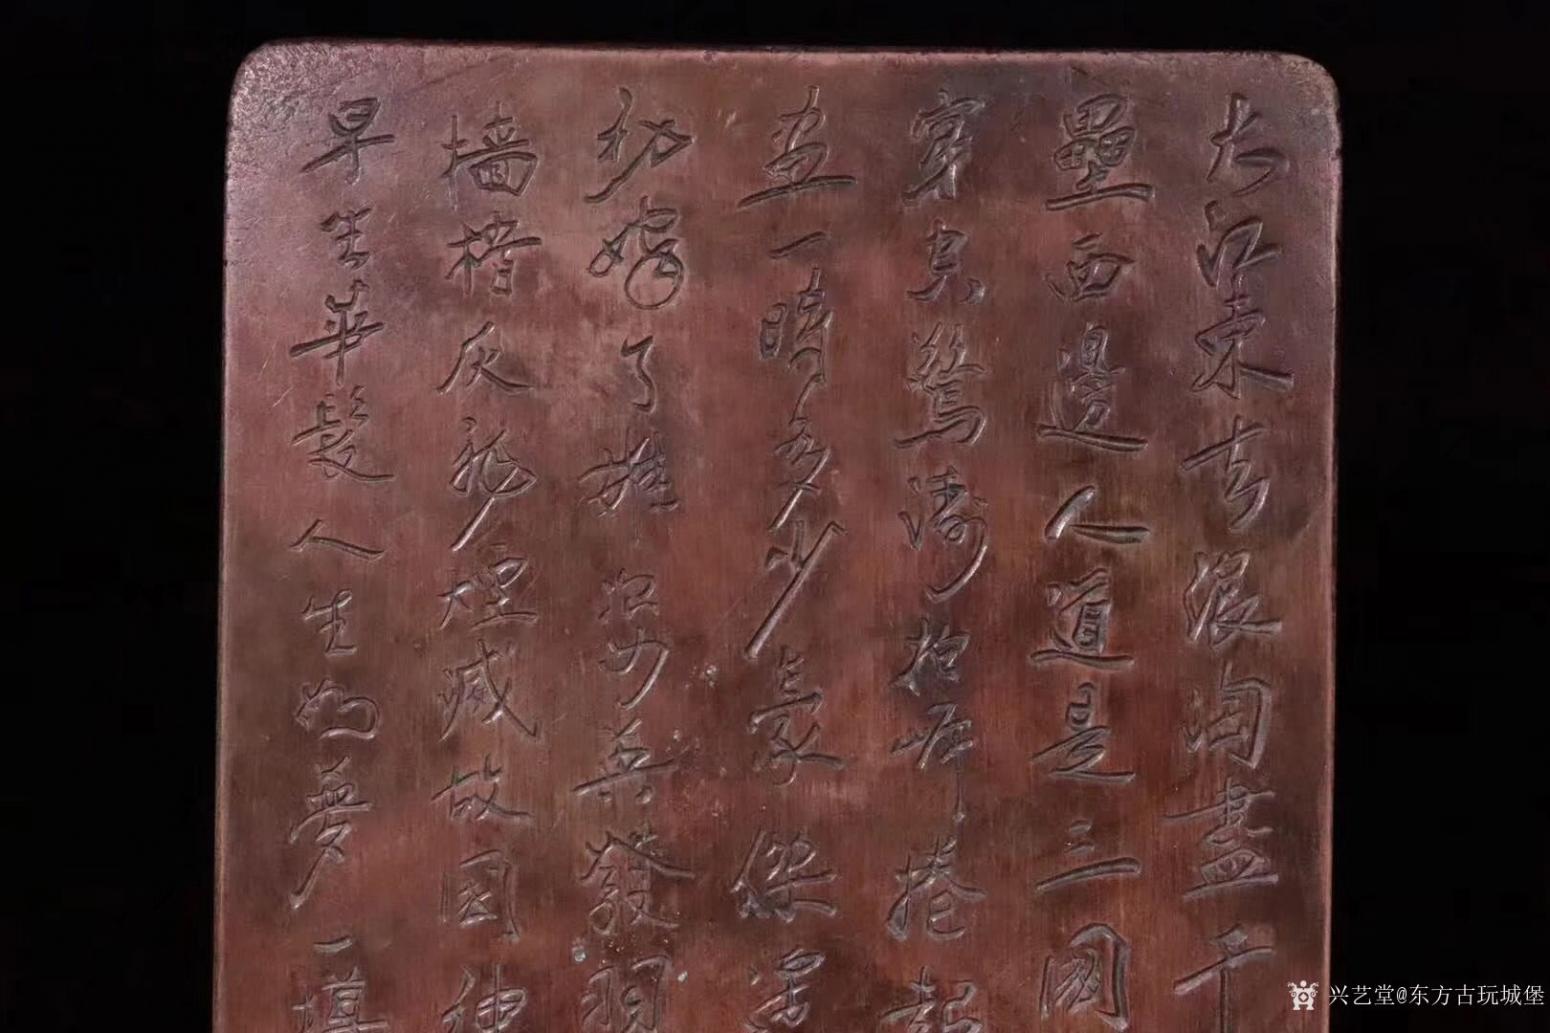 大江東去浪淘盡千
壘西邊人道是三國
穿空驚濤拍岸捲起
畫一時多少豪傑
初嫁了雄姿英發羽
樯櫓灰飛煙滅故国神
早生華髮人生如夢一樽
兴艺堂@东方古玩城堡